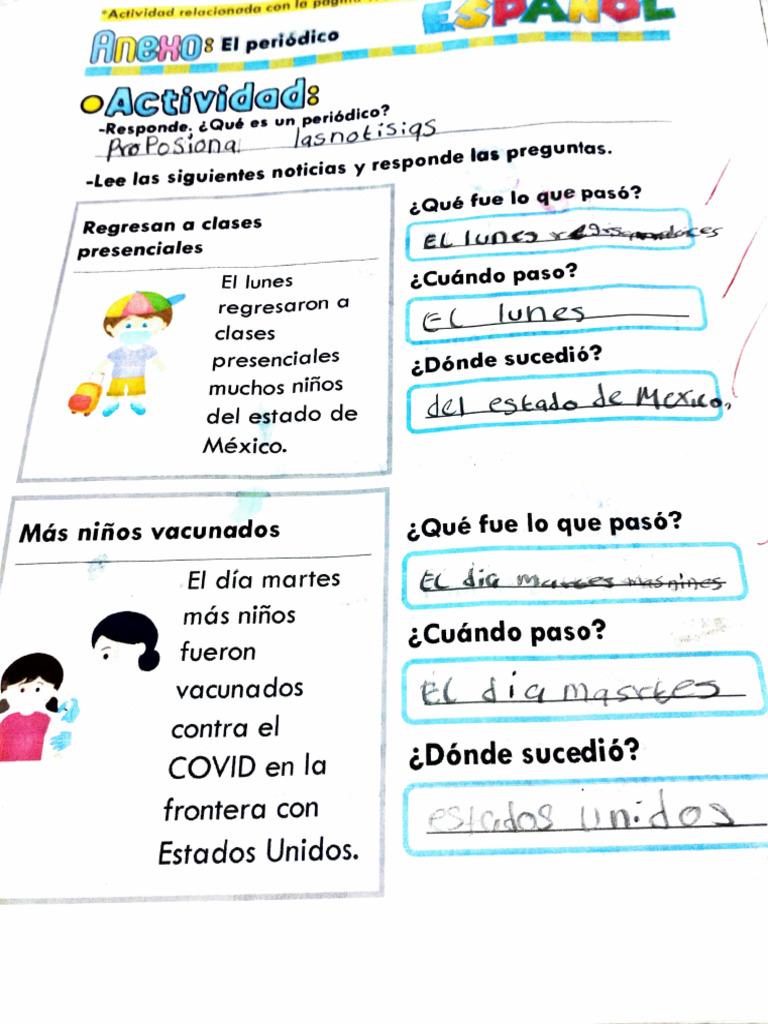 *Actividad relacionada con la página
ESPAÑOL
Anexo: El periódico
Actividad:
-Responde. ¿Qué es un periódico?
ProPosiona lasnotisias
-Lee las siguientes noticias y responde las preguntas.
Regresan a clases
presenciales
El lunes
regresaron a
clases
presenciales
muchos niños
del estado de
México.
¿Qué fue lo que pasó?
EL lunes
¿Cuándo paso?
EL lunes
¿Dónde sucedió?
del estado de Mexico.
Más niños vacunados
El día martes
más niños
fueron
vacunados
contra el
COVID en la
frontera con
Estados Unidos.
¿Qué fue lo que pasó?
EL dia
¿Cuándo paso?
EL dia masrtes
¿Dónde sucedió?
estados Unidos